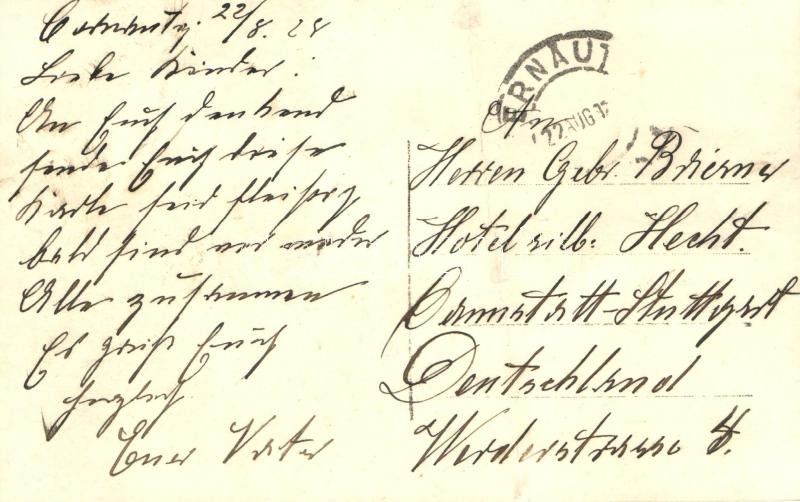 22/8. 28
Liebe Kinder!
An Euch denkend
sende Euch diese
Karte seid fleisig
bald sind wir wieder
Alle zusammen
Es grüßt Euch
herzlich
Euer Vater
ERNAU
22 AUG
An
Herren Gebr.
Hotel silb: Hecht.
Cannstatt-Stuttgart
Deutschland
Werderstrasse 4.